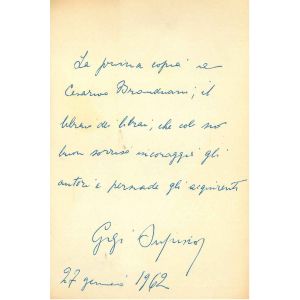 La prima copia a
Cesarino Branduani, il
libraio dei librai, che col suo
buon sorriso incoraggia gli
autori e persuade gli acquirenti
Gigi
27 gennaio 1962